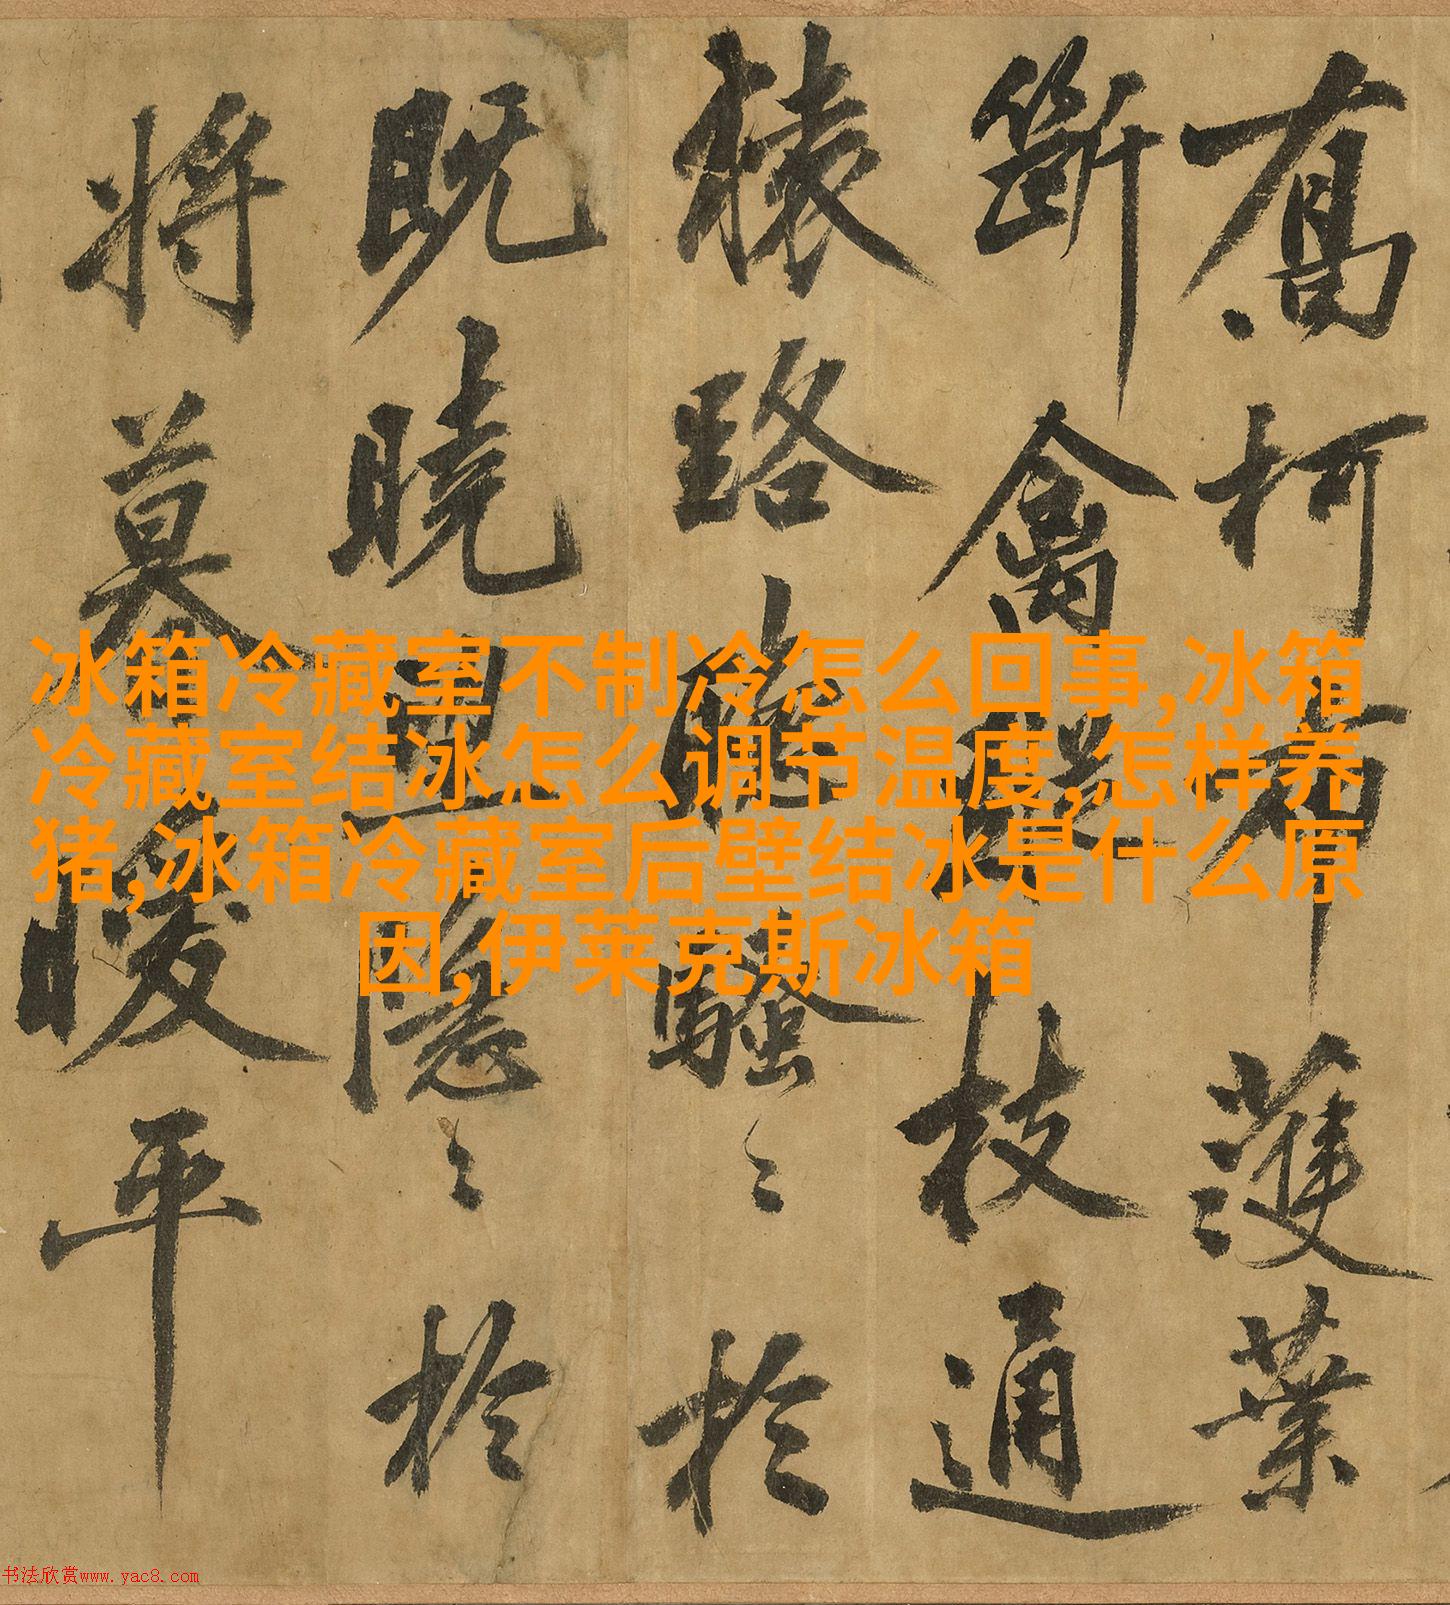 柯布濩葉
斷禽枝通
猿路騷〻於
既曉隱〻於
將暮曖平
冰箱冷藏室不制冷怎么回事,冰箱
冷藏室结冰怎么调节温度,怎样养
猪,冰箱冷藏室后壁结冰是什么原
因,伊莱克斯冰箱
书法欣赏www.yac8.com